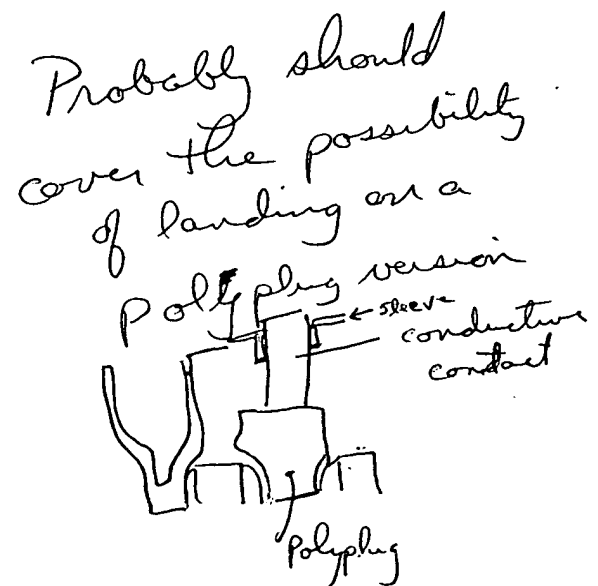 Probably should
cover the possibility
of landing on a
polyplug version
sleeve
conductive
contact
Polyplug